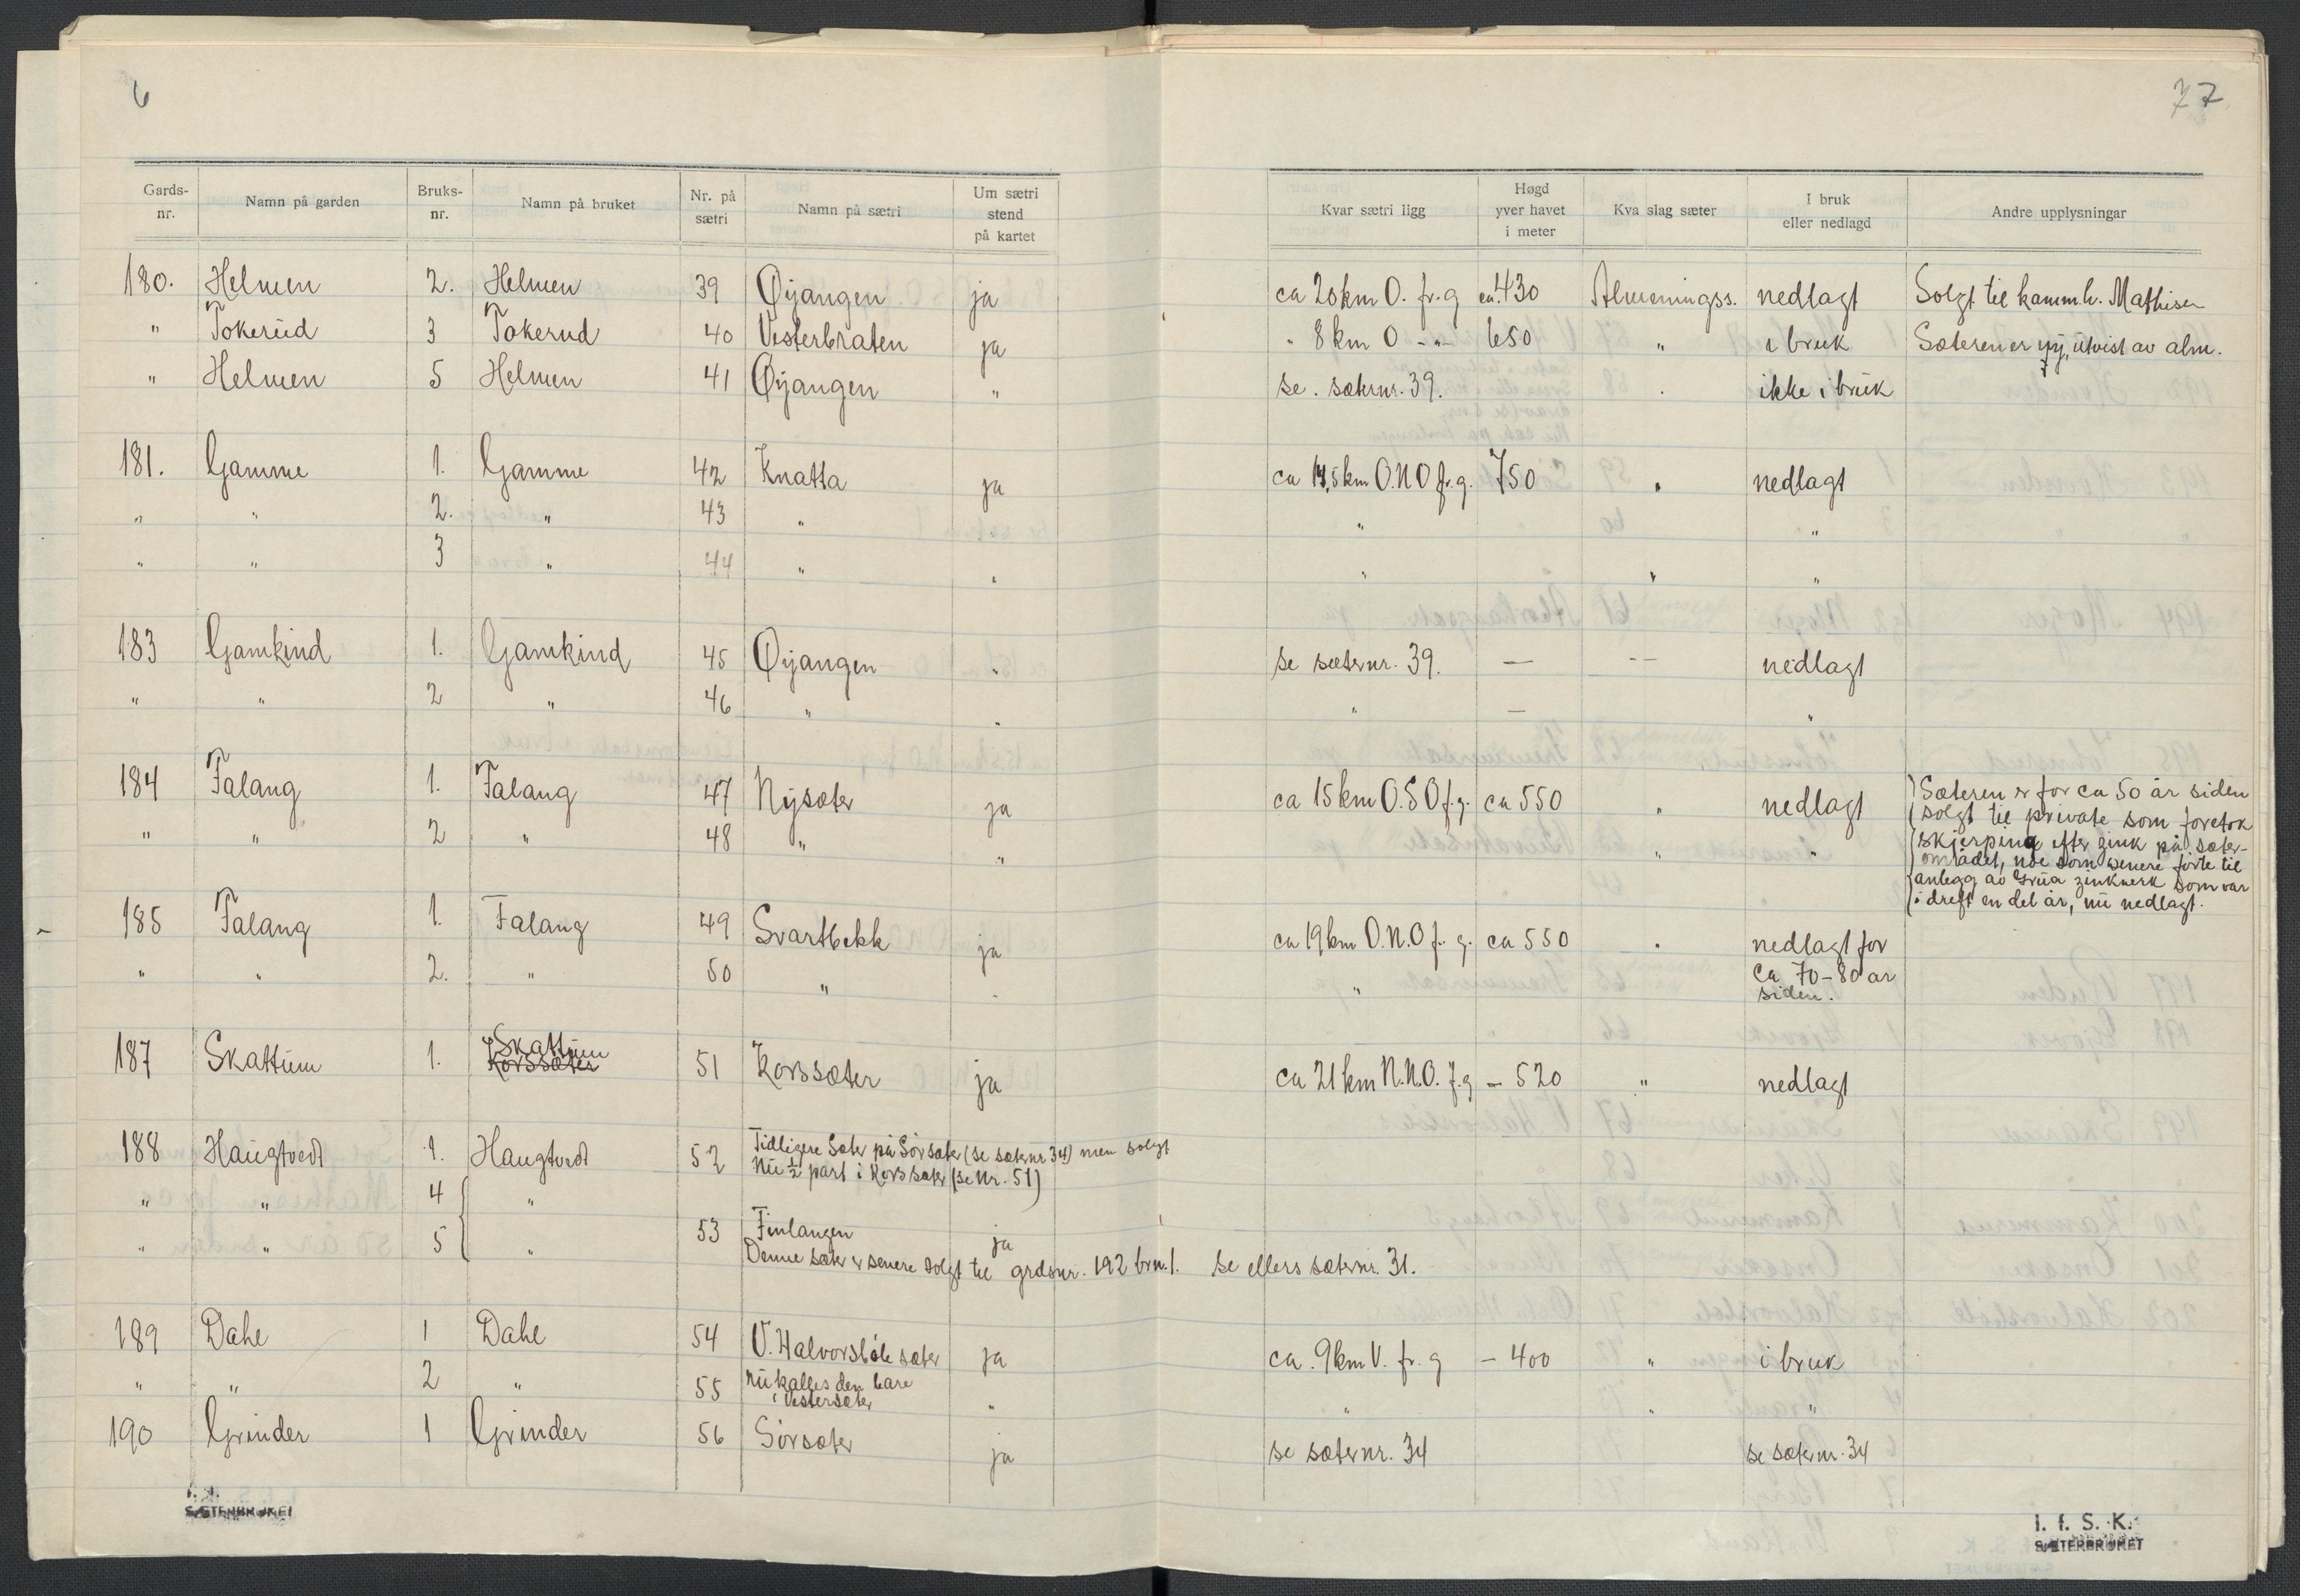 6
77
Gards-nr. Namn på garden Bruks-nr. Namn på bruket Nr. på sætri Namn på sætri Um sætri stend på kartet Kvar sætri ligg Høgd yver havet i meter Kva slag sæter I bruk eller nedlagd Andre upplysningar
180. Helmen 2. Helmen 39 Øijangen ja ca 20 km O. fr. g ca. 430 Almenningss. nedlagt Solgt til kamm.h. Mathisen
" Tokerud 3 Tokerud 40 Vesterbraten ja " 8 km O - " - 650 " i bruk Sæteren er ny, utvist av alm.
" Helmen 5 Helmen 41 Øijangen " se. sæternr. 39. " ikke i bruk
181. Gamme 1. Gamme 42 Knatta ja ca 14,5 km O.N.O fr. g. 750 " nedlagt
" " 2. " 43 " " "
" " 3 " 44 " " " " "
183 Gamkind 1. Gamkind 45 Øijangen " se sæternr. 39. — -- nedlagt
" " 2 " 46 " " " — "
184 Falang 1. Falang 47 Nysæter ja ca 15 km O.S.O f.g. ca 550 " nedlagt Sæteren er for ca 50 år siden
solgt til private som foretok
" " 2 " 48 " " " " skjerping efter zink på sæter-
området, noe som senere førte til
anlegg av Grua zinkverk som var
i drift en del år, nu nedlagt.
185 Falang 1. Falang 49 Svartbekk ja ca 19 km O.N.O f. g. ca 550 " nedlagt for
" " 2. " 50 " " " ca 70-80 år
siden.
187 Skattum 1. Skattum
Korssæter 51 Korssæter ja ca 21 km N.N.O. f.g - 520 " nedlagt
188 Haugtvedt 1. Haugtvedt 52 Tidligere Sæter på Sørsæter (se sæternr 34) men solgt
Nu ½ part i Korssæter (se Nr. 51)
" " 4 "
" " 5 " 53 Finlangen ja
Denne sæter er senere solgt til grdsnr. 192 brn. 1. se ellers sæternr. 31.
189 Dahl 1 Dahl 54 V. Halvorsbøle sæter ja ca. 9 km V. fr. g - 400 " i bruk
" " 2 " 55 Nu kalles den bare
Vestersæter " " " "
190 Grinder 1 Grinder 56 Sørsæter ja se sæternr. 34 se sæternr. 34
SÆTERBRUKET
I. f. S. K.
SÆTERBRUKET